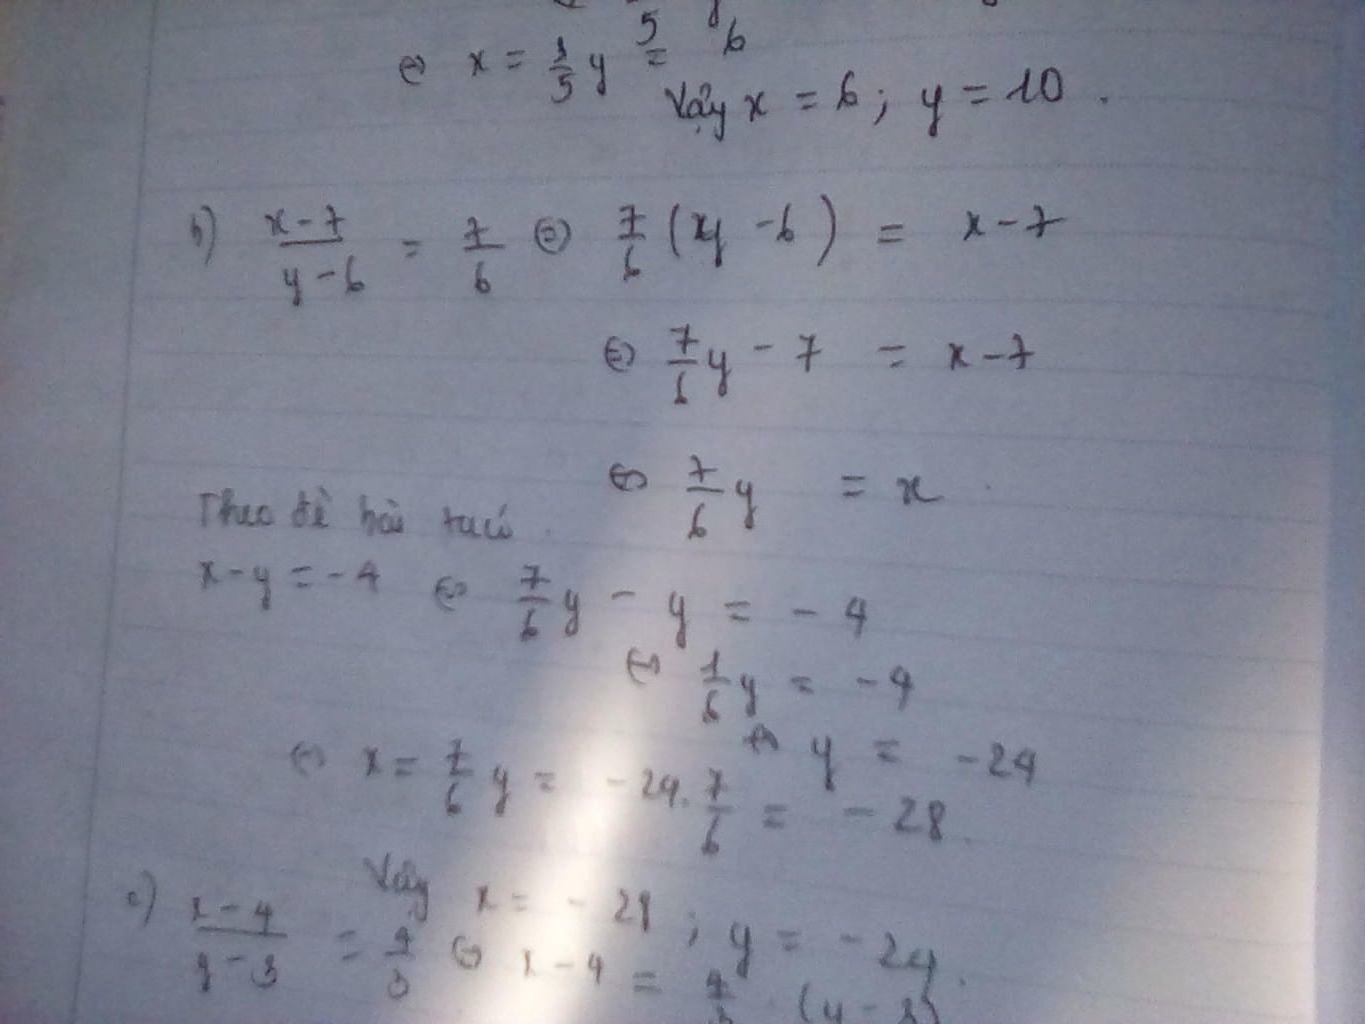 ⇔ x = 3/5 y = 6
Vậy x = 6; y = 10.
b) x-7/y-6 = 7/6 ⇔ 7/6 (y - 6) = x - 7
⇔ 7/6 y - 7 = x - 7
⇔ 7/6 y = x.
Theo đề bài ta có
x-y = -4 ⇔ 7/6 y - y = -4
⇔ 1/6 y = -4
⇔ y = -24
⇔ x = 7/6 y = -24. 7/6 = -28.
Vậy x = -28; y = -24.
c) x-4/y-3 = 4/3 ⇔ x-4 = 4/3 (y-3)